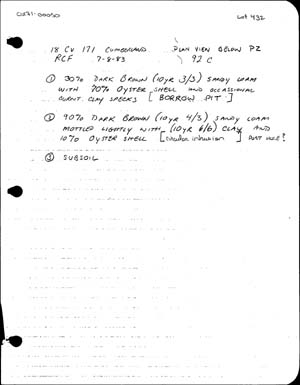 0271-00050
Lot 432
18 CV 171 CUMBERLAND PLAN VIEW BELOW PZ
RCF 7-8-83 92 C
① 30% DARK BROWN (10YR 3/3) SANDY LOAM
WITH 70% OYSTER SHELL AND OCCASSIONAL
CLAY SPECKS [BORROW PIT]
② 90% DARK BROWN (10YR 4/3) SANDY LOAM
MOTTLED LIGHTLY WITH (10YR 6/6) CLAY AND
10% OYSTER SHELL [circular intrusion] POST HOLE?
③ SUBSOIL